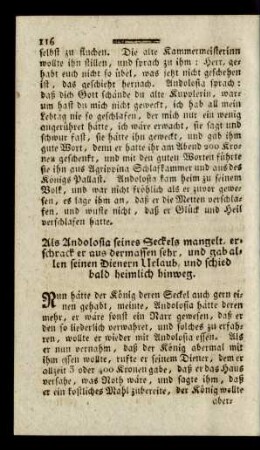 116
selbst zu fluchen. Die alte Kammermeisterinn
wollte ihn stillen, und sprach zu ihm: Herr, ge-
habt euch nicht so übel, was jetzt nicht geschehen
ist, das geschieht hernach. Andolosia sprach:
daß dich Gott schände du alte Kupolerin, war-
um hast du mich nicht geweckt, ich hab all mein
Lebtag nie so geschlafen, der mich nur ein wenig
angerührt hätte, ich wäre erwacht, sie sagt und
schwur fast, sie hätte ihn geweckt, und gab ihm
gute Wort, denn er hatte ihr am Abend 200 Kro-
nen geschenkt, und mit den guten Worten führte
sie ihn aus Agrippina Schlafkammer und aus des
Königs Pallast. Andolosia kam heim zu seinem
Volk, und war nicht fröhlich als er zuvor gewe-
sen, es lag ihm nur an, daß er die Metten verschla-
fen, und wußte nicht, daß er Glück und Heil
verschlafen hatte.
Als Andolosia seines Seckels mangelt, er-
schrack er aus dermassen sehr, und gab al-
len seinen Dienern Urlaub, und schied
bald heimlich hinweg.
Nun hätte der König deren Seckel auch gern ei-
nen gehabt, meinte, Andolosia hätte deren
mehr, er wäre sonst ein Narr gewesen, daß er
den so liederlich verwahret, und solches zu erfah-
ren, wollte er wieder mit Andolosia essen. Als
er nun vernahm, daß der König abermal mit
ihm essen wollte, rufte er seinem Diener, dem er
allzeit 3 oder 400 Kronen gabe, daß er das Haus
versahe, was Noth wäre, und sagte ihm, daß
er ein kostliches Mahl zubereite, der König wollte
aber-